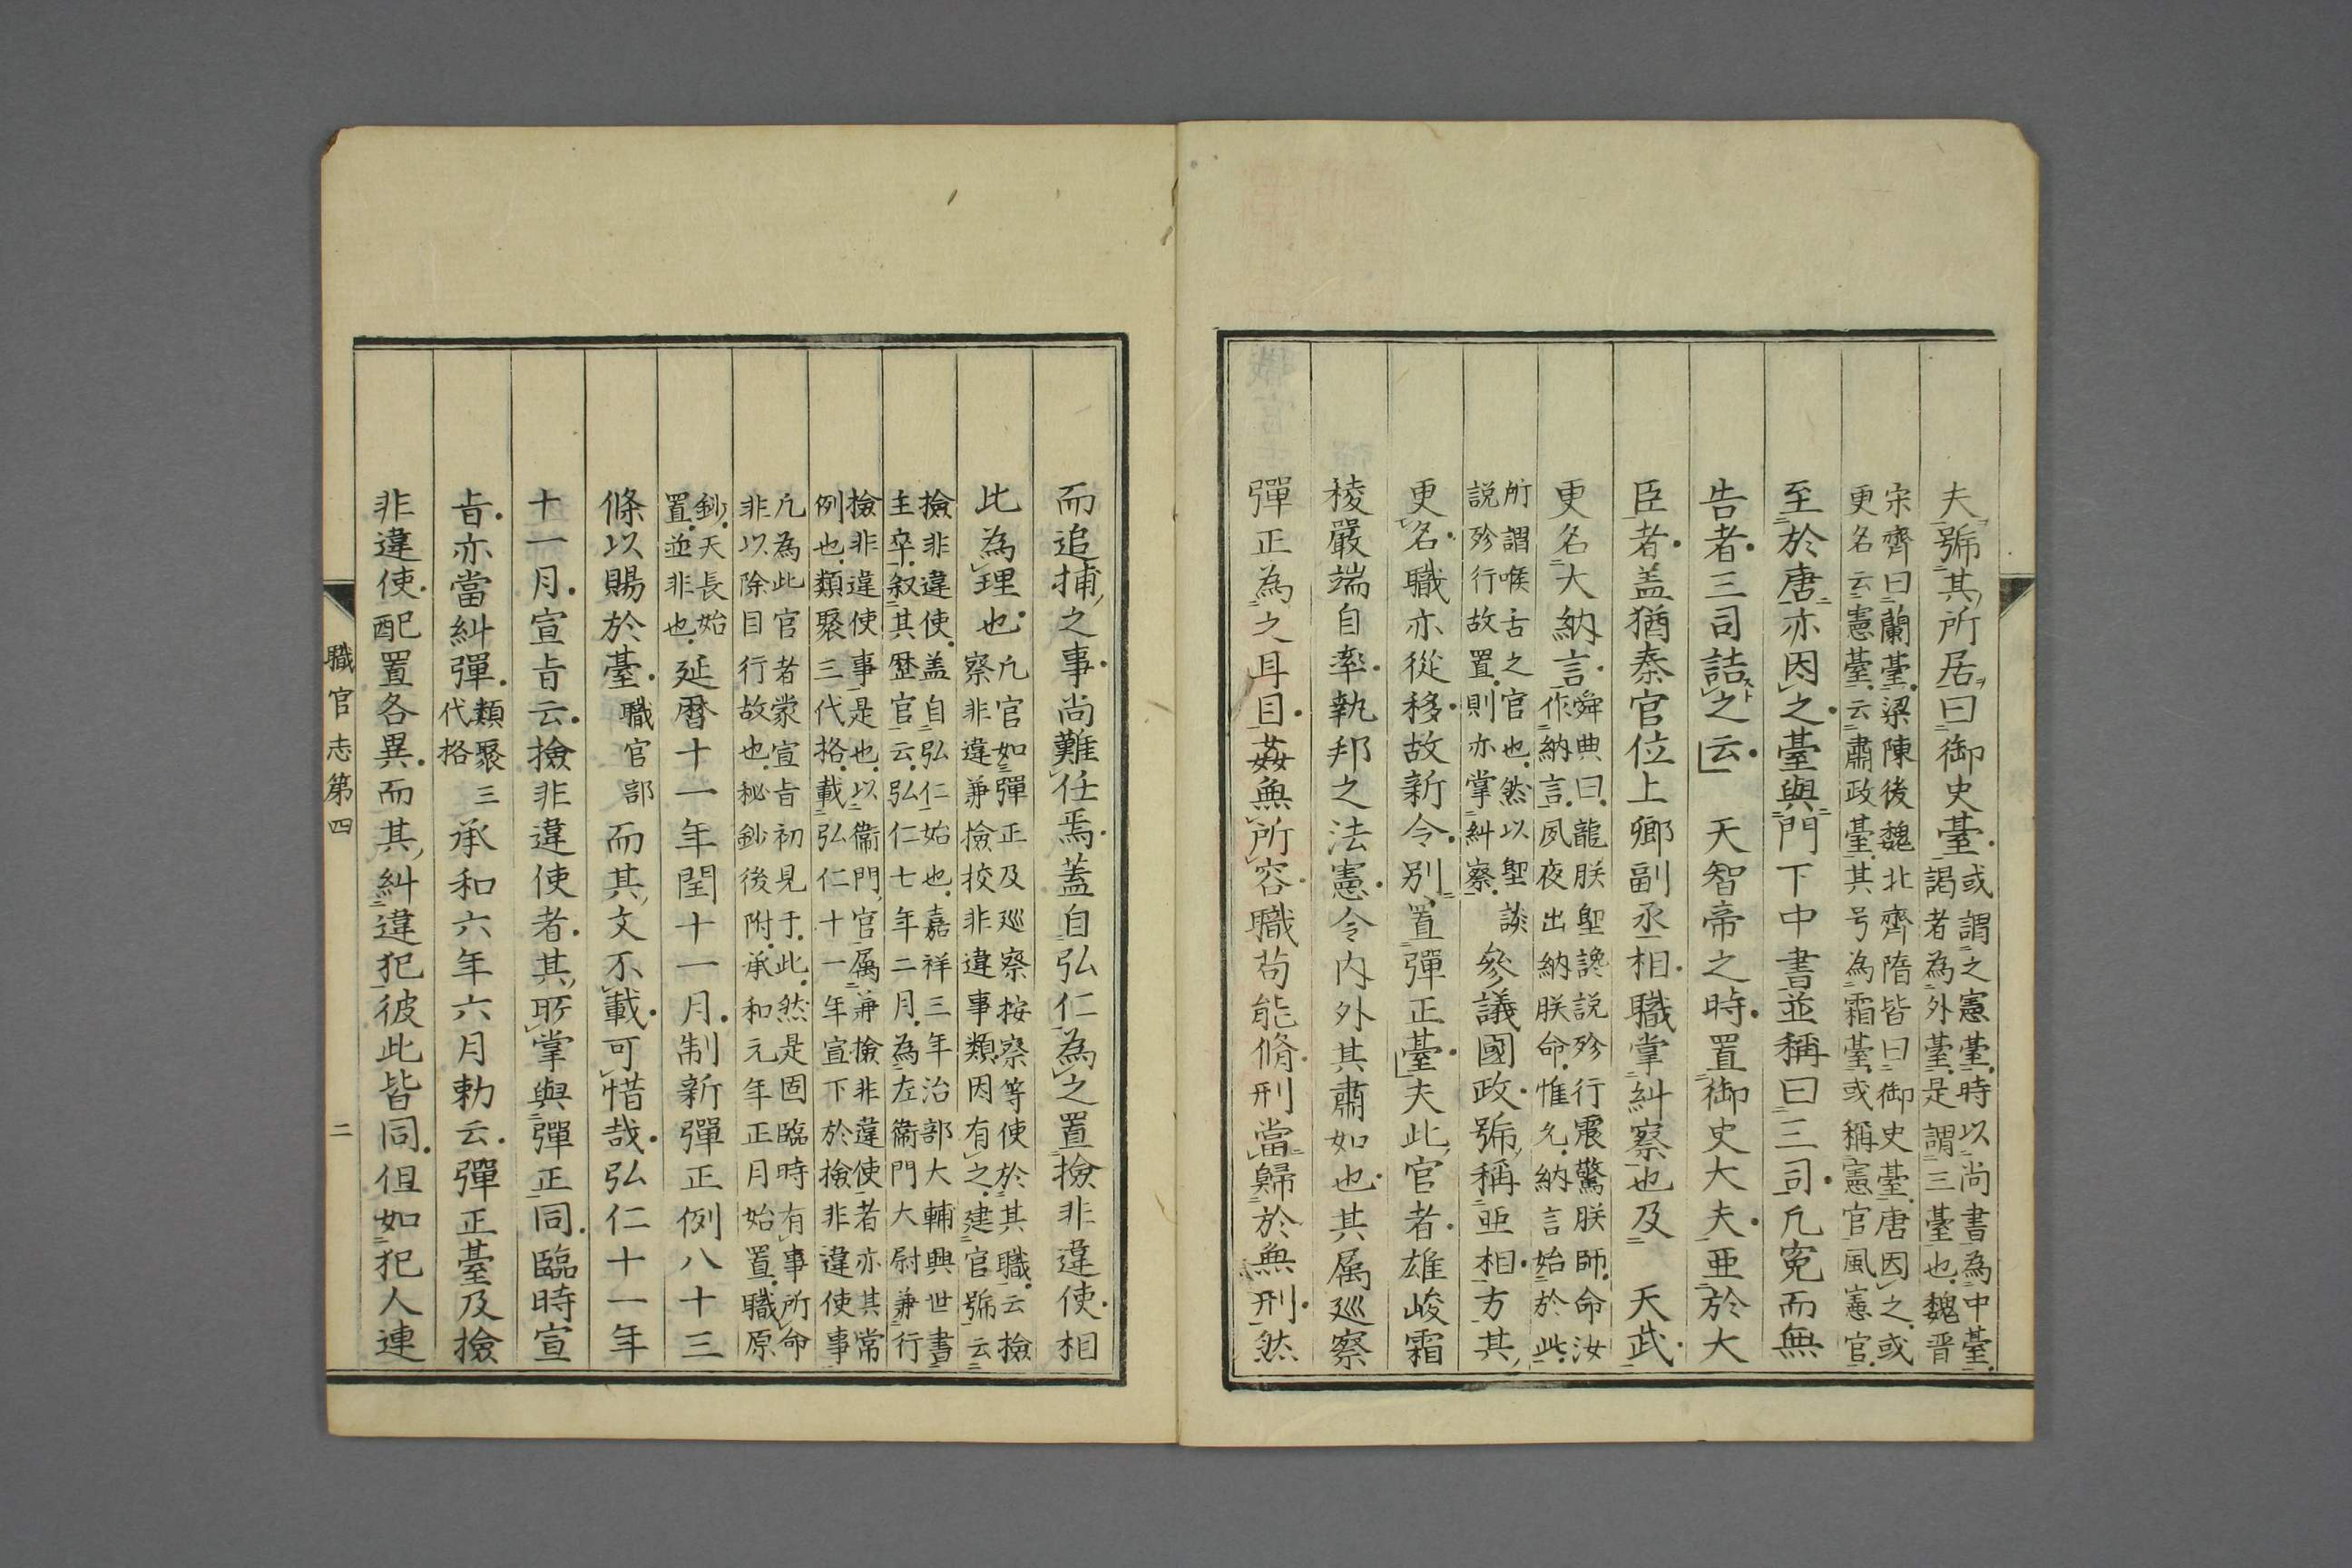 夫號其所居曰御史臺
或謂之憲臺時以尚書為中臺
謁者為外臺是謂三臺也魏晋
宋齊曰蘭臺梁陳後魏北齊隋皆曰御史臺唐因之或
更名云憲臺云肅政臺其号為霜臺或稱憲官風憲官
至於唐亦因之臺與門下中書並稱曰三司凡寃而無
告者三司詰之云　天智帝之時置御史大夫亜於大
臣者盖猶秦官位上卿副丞相職掌糾察也及　天武
更名大納言
舜典曰龍朕堲讒説殄行震驚朕師命汝
作納言夙夜出納朕命惟允納言始於此
所謂喉舌之官也然以堲談
説殄行故置則亦掌糾察
參議國政號稱亜相方其
更名職亦從移故新令別置彈正臺夫此官者雄峻霜
稜嚴端自率執邦之法憲令内外其肅如也其属巡察
彈正為之耳目姦無所容職苟能脩刑當歸於無刑然
而追捕之事尚難任焉蓋自弘仁為之置撿非違使相
此為理也
凡官如彈正及巡察按察等使於其職云撿
察非違兼撿挍非違事類因有之建官號云
撿非違使盖自弘仁始也嘉祥三年治部大輔興世書
主卒叙其歴官云弘仁七年二月為左衞門大尉兼行
撿非違使事是也以衞門官属兼撿非違使者亦其常
例也類聚三代格載弘仁十一年宣下於撿非違使事
凡為此官者蒙宣旨初見于此然是固臨時有事所命
非以除目行故也秘鈔後附承和元年正月始置職原
鈔天長始
置並非也
延暦十一年閏十一月制新彈正例八十三
條以賜於臺
職官部
而其文不載可惜哉弘仁十一年
十一月宣旨云撿非違使者其所掌與彈正同臨時宣
旨亦當糾彈
類聚三
代格
承和六年六月勅云彈正臺及撿
非違使配置各異而其糾違犯彼此皆同但如犯人連
職官志第四
二